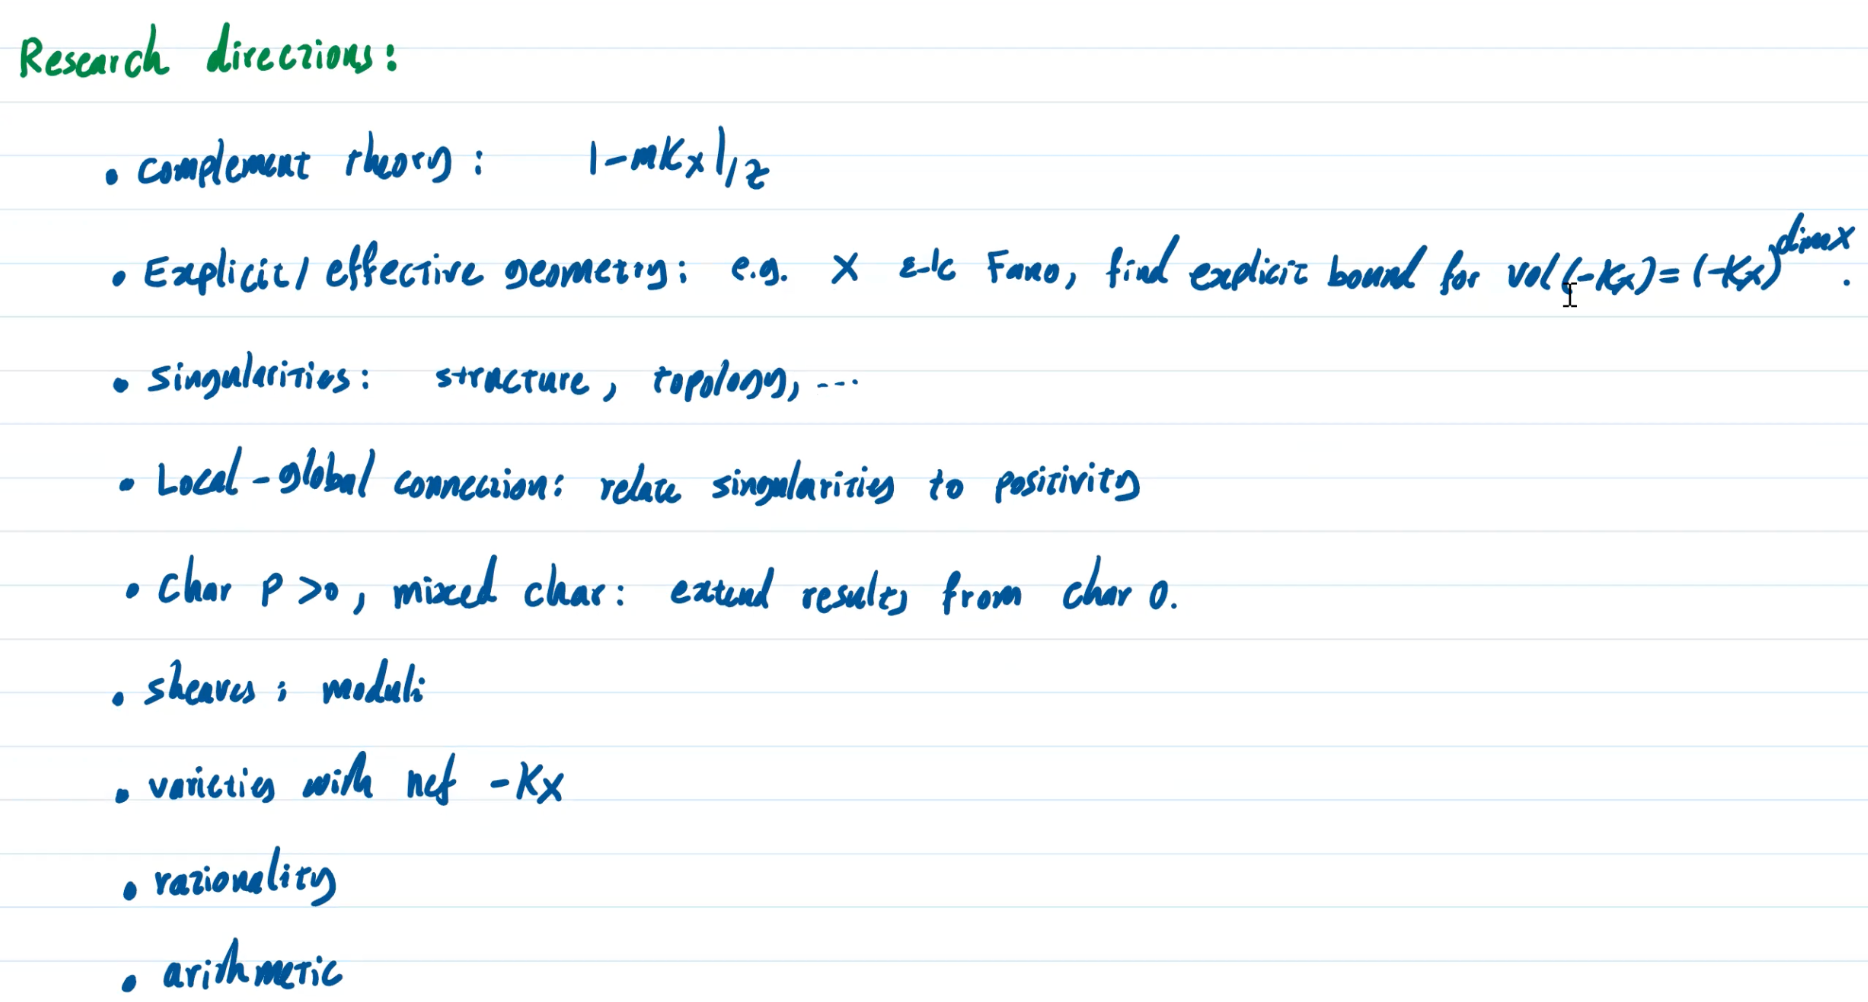 Research directions:
• complement theory: |-mKx|/Z
• Explicit/effective geometry: e.g. X ε-lc Fano, find explicit bound for vol(-Kx) = (-Kx)^dimX.
• singularities: structure, topology, ...
• Local-global connection: relate singularities to positivity
• char p>0, mixed char: extend results from char 0.
• sheaves: moduli
• varieties with nef -Kx
• rationality
• arithmetic